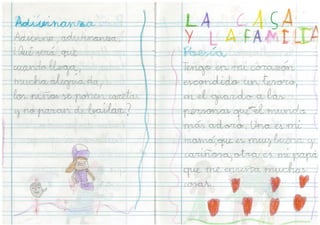 Adivinanza
Adivina, adivinanza,
¿Qué será que
cuando llega,
mucha alegría da,
los niños se ponen contar
y no paran de bailar?
LA CASA
Y LA FAMILIA
Poesía
Tengo en mi corazón
escondido un tesoro,
en el guardo a las
personas que el mundo
más adoro. Una es mi
mamá, que es muy buena y
cariñosa, otra es mi papá
que me enseña muchas
cosas.